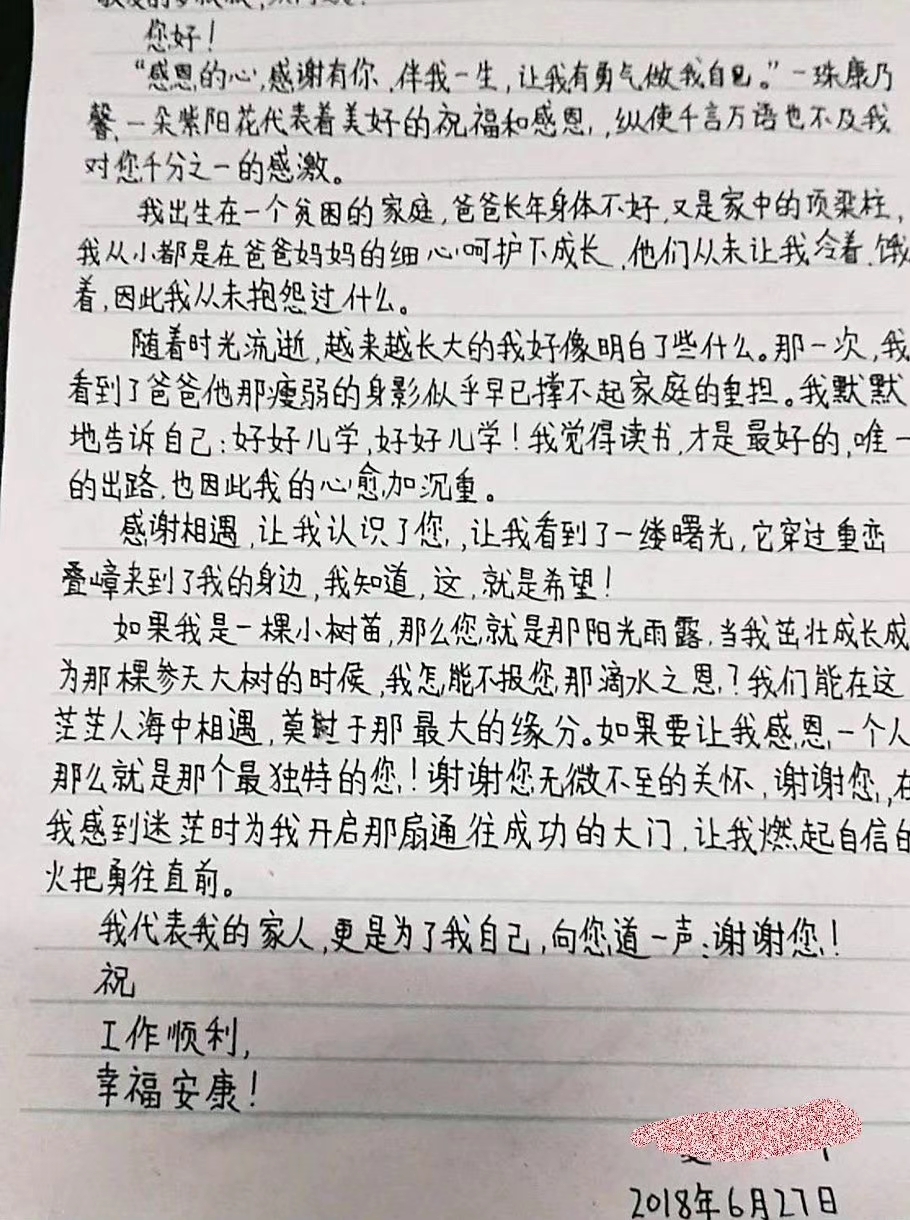 您好！
“感恩的心，感谢有你，伴我一生，让我有勇气做我自己。”一珠康乃
馨，一朵紫阳花代表着美好的祝福和感恩，纵使千言万语也不及我
对您千分之一的感激。
我出生在一个贫困的家庭，爸爸长年身体不好，又是家中的顶梁柱，
我从小都是在爸爸妈妈的细心呵护下成长，他们从未让我冷着，饿
着，因此我从未抱怨过什么。
随着时光流逝，越来越长大的我好像明白了些什么。那一次，我
看到了爸爸他那瘦弱的身影似乎早已撑不起家庭的重担。我默默
地告诉自己：好好儿学，好好儿学！我觉得读书，才是最好的，唯一
的出路，也因此我的心愈加沉重。
感谢相遇，让我认识了您，让我看到了一缕曙光，它穿过重峦
叠嶂来到了我的身边，我知道，这，就是希望！
如果我是一棵小树苗，那么您就是那阳光雨露，当我茁壮成长成
为那棵参天大树的时候，我怎能不报您那滴水之恩？我们能在这
茫茫人海中相遇，莫过于那最大的缘分。如果要让我感恩一个人
那么就是那个最独特的您！谢谢您无微不至的关怀，谢谢您，在
我感到迷茫时为我开启那扇通往成功的大门，让我燃起自信的
火把勇往直前。
我代表我的家人，更是为了我自己，向您道一声：谢谢您！
祝
工作顺利，
幸福安康！
2018年6月27日